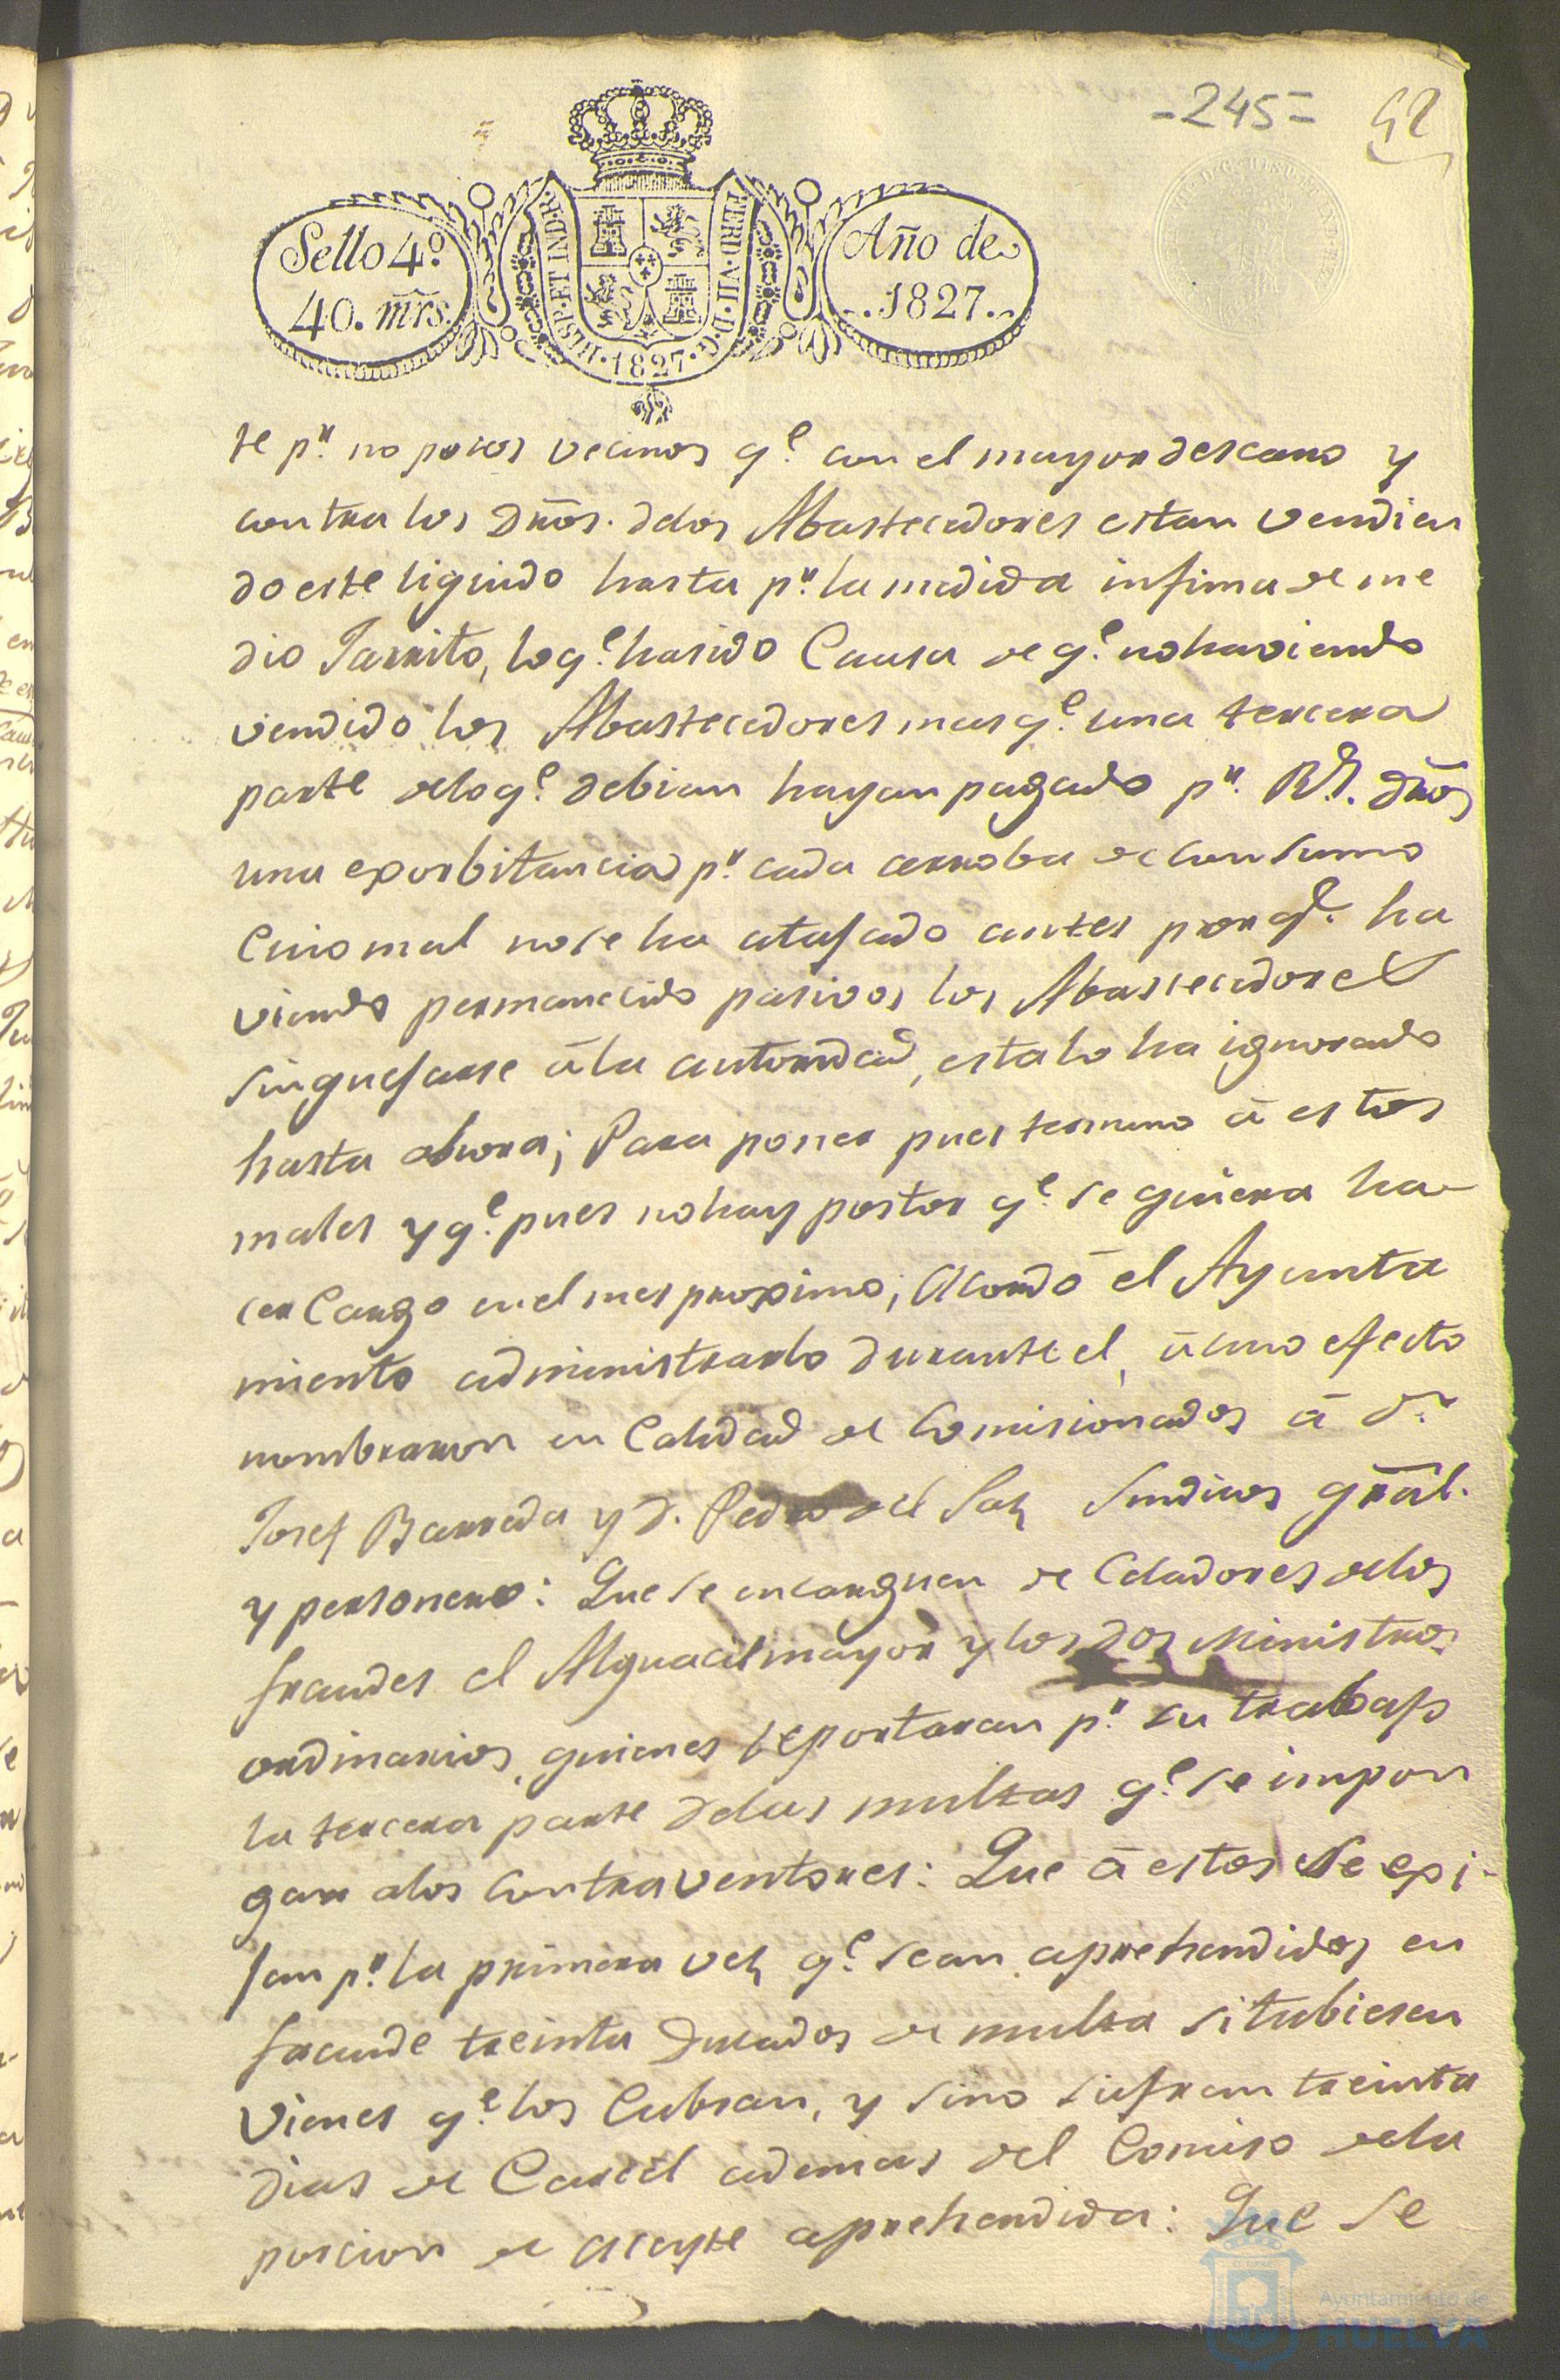 -245= 42
Sello 4º
40. mrs.
HISP. ET IND. R.
FERD. VII. D. G.
·1827·
Año de
..1827..
te pr. no pocos vecinos qe. con el mayor descaro y
contra los Dros. delos Abastecedores estan vendien
do este liquido hasta pr. la medida infima de me
dio Jarrito, lo qe. ha sido Causa de qe. no haviendo
vendido los Abastecedores mas qe. una tercera
parte delo qe. debian hayan pagado pr. Rs. dros
una exorbitancia pr. cada arroba de consumo
Cuio mal nose ha atajado antes porqe. ha
viendo permanecido pasivos los Abastecedores
sin quejarse á la autoridad, esta lo ha ignorado
hasta ahora; Para poner pues termino á estos
males y qe. pues no hay postor qe. se quiera ha-
cer Cargo en el mes proximo, Acordó el Ayunta
miento administrarlo durante el, á cuio efecto
nombraron en Calidad de Comisionados á Dn.
Josef Barreda y D. Pedro del Saz Sindicos gral.
y personero: Que se encarguen de Celadores delos
fraudes el Alguacil mayor y los dos Ministros
ordinarios, quienes reportaran pr. su trabajo
la tercera parte delas multas qe. se impon
gan alos Contraventores: Que á estos se exi-
jan pr. la primera vez qe. sean aprehendidos en
fraude treinta Ducados de multa si tubiesen
vienes qe. los Cubran, y sino sufran treinta
dias de Carcel ademas del Comiso dela
porcion de aceyte aprehendida: Que se
Ayuntamiento de
HUELVA